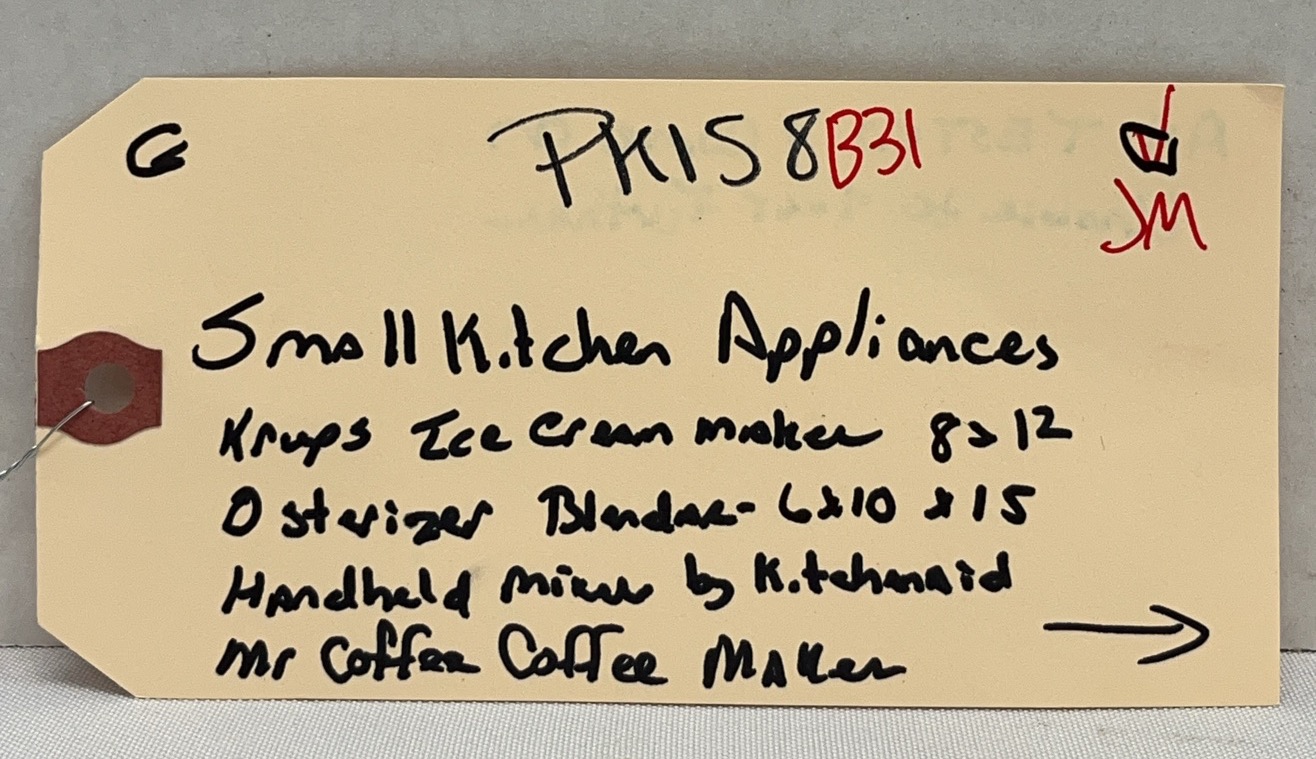 G PK158 B31
JM
Small Kitchen Appliances
Krups Ice Cream maker 8x12
Osterizer Blender- 6x10x15
Handheld mixer by Kitchenaid
Mr Coffee Coffee Maker